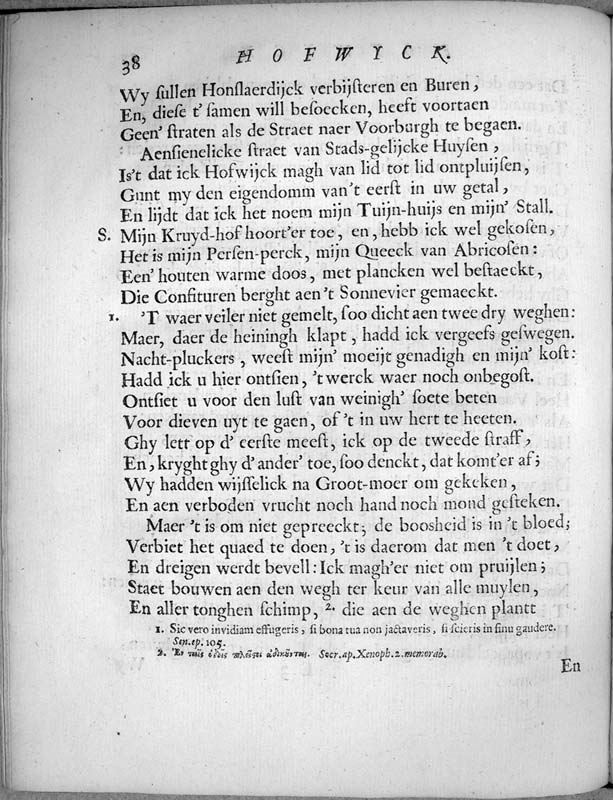 38 HOFWYCK.
Wy sullen Honslaerdijck verbijsteren en Buren,
En, diese t'samen will besoecken, heeft voortaen
Geen' straten als de Straet naer Voorburgh te begaen.
Aensienelicke straet van Stads-gelijcke Huysen,
Is't dat ick Hofwijck magh van lid tot lid ontpluijsen,
Gunt my den eigendomm van't eerst in uw getal,
En lijdt dat ick het noem mijn Tuijn-huijs en mijn' Stall.
S. Mijn Kruyd-hof hoort'er toe, en, hebb ick wel gekosen,
Het is mijn Persen-perck, mijn Queeck van Abricosen:
Een' houten warme doos, met plancken wel bestaeckt,
Die Confituren berght aen't Sonnevier gemaeckt.
1. 'T waer veiler niet gemelt, soo dicht aen twee dry weghen:
Maer, daer de heiningh klapt, hadd ick vergeefs geswegen.
Nacht-pluckers, weest mijn' moeijt genadigh en mijn' kost:
Hadd ick u hier ontsien, 't werck waer noch onbegost.
Ontsiet u voor den lust van weinigh' soete beten
Voor dieven uyt te gaen, of 't in uw hert te heeten.
Ghy lett op d' eerste meest, ick op de tweede straff,
En, kryght ghy d' ander' toe, soo denckt, dat komt'er af;
Wy hadden wijsselick na Groot-moer om gekeken,
En aen verboden vrucht noch hand noch mond gesteken.
Maer 't is om niet gepreeckt; de boosheid is in 't bloed;
Verbiet het quaed te doen, 't is daerom dat men 't doet,
En dreigen werdt bevell: Ick magh'er niet om pruijlen;
Staet bouwen aen den wegh ter keur van alle muylen,
En aller tonghen schimp, 2. die aen de weghen plantt
1. Sic vero invidiam effugeris, si bona tua non jactaveris, si scieris in sinu gaudere.
Sen. ep. 105.
2. Ἐν ταῖς ὁδοῖς Socr. ap. Xenoph. 2. memorab.
En